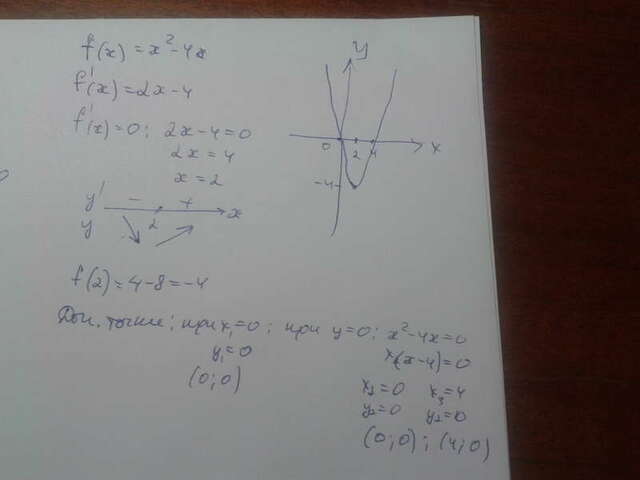 f(x) = x² - 4x
f'(x) = 2x - 4
f'(x) = 0; 2x - 4 = 0
2x = 4
x = 2
y' - + x
y 2
f(2) = 4 - 8 = -4
y
0 2 4 x
-4
Доп. точки; при x₁ = 0; при y = 0; x² - 4x = 0
y₁ = 0 x(x - 4) = 0
(0; 0) x₂ = 0 x₃ = 4
y₂ = 0 y₂ = 0
(0; 0); (4; 0)